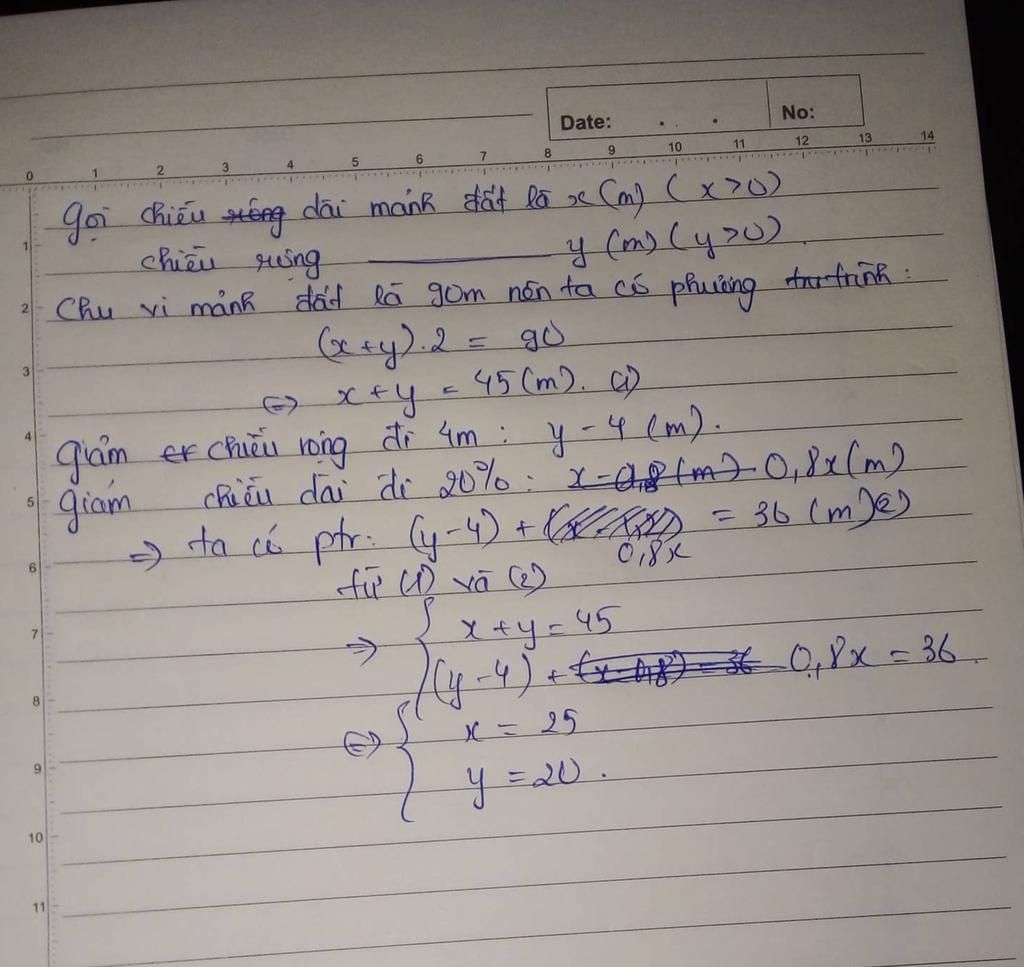 Date: . . No:
0 1 2 3 4 5 6 7 8 9 10 11 12 13 14
gọi chiều rộng dài mảnh đất là x (m) ( x > 0)
1 chiều rưng ———— y (m) ( y > 0)
2 Chu vi mảnh đất là 90m nên ta có phương trình :
(x + y) . 2 = 90
3 <=> x + y = 45 (m). (1)
4 Giảm chiều rộng đi 4m : y - 4 (m).
5 Giảm chiều dài đi 20% : x - 0,8 (m) 0,8x (m)
=> ta có ptr: (y - 4) + 0,8x = 36 (m) (2)
6 từ (1) và (2)
7 => { x + y = 45
(y - 4) + (x - 0,8) = 36 0,8x = 36 .
8 <=> { x = 25
9 y = 20 .
10
11